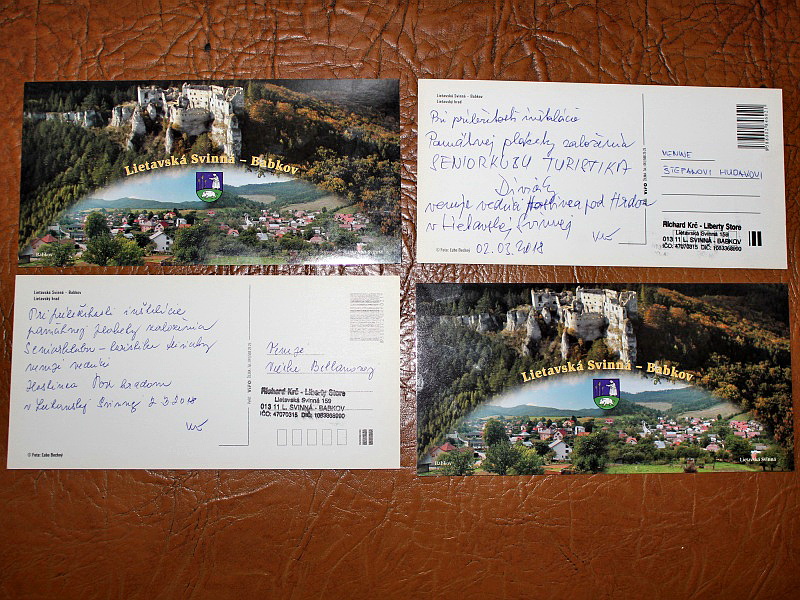 Lietavská Svinná – Babkov
Babkov
Lietavská Svinná – Babkov
Lietavský hrad
Pri príležitosti inštalácie
Pamätnej plakety založenia
SENIORKUBU TURISTIKA
Diviaky
venuje
pod
v Lietavskej Svinnej
02.03.2018
VENUJE
ŠTEPANOVI HUDANOVI
Richard Krč - Liberty Store
Lietavská Svinná 159
013 11 L. SVINNÁ - BABKOV
IČO: 47070315 DIČ: 1083368990
© Foto: Ľubo Bechný
Lietavská Svinná – Babkov
Lietavský hrad
Pri príležitosti inštalácie
pamätnej plakety založenia
venuje vedúci
Hostinca Pod hradom
v Lietavskej Svinnej 2.3.2018
Venuje
Richard Krč - Liberty Store
Lietavská Svinná 159
013 11 L. SVINNÁ - BABKOV
IČO: 47070315 DIČ: 1083368990
© Foto: Ľubo Bechný
Lietavská Svinná – Babkov
Babkov
Lietavská Svinná